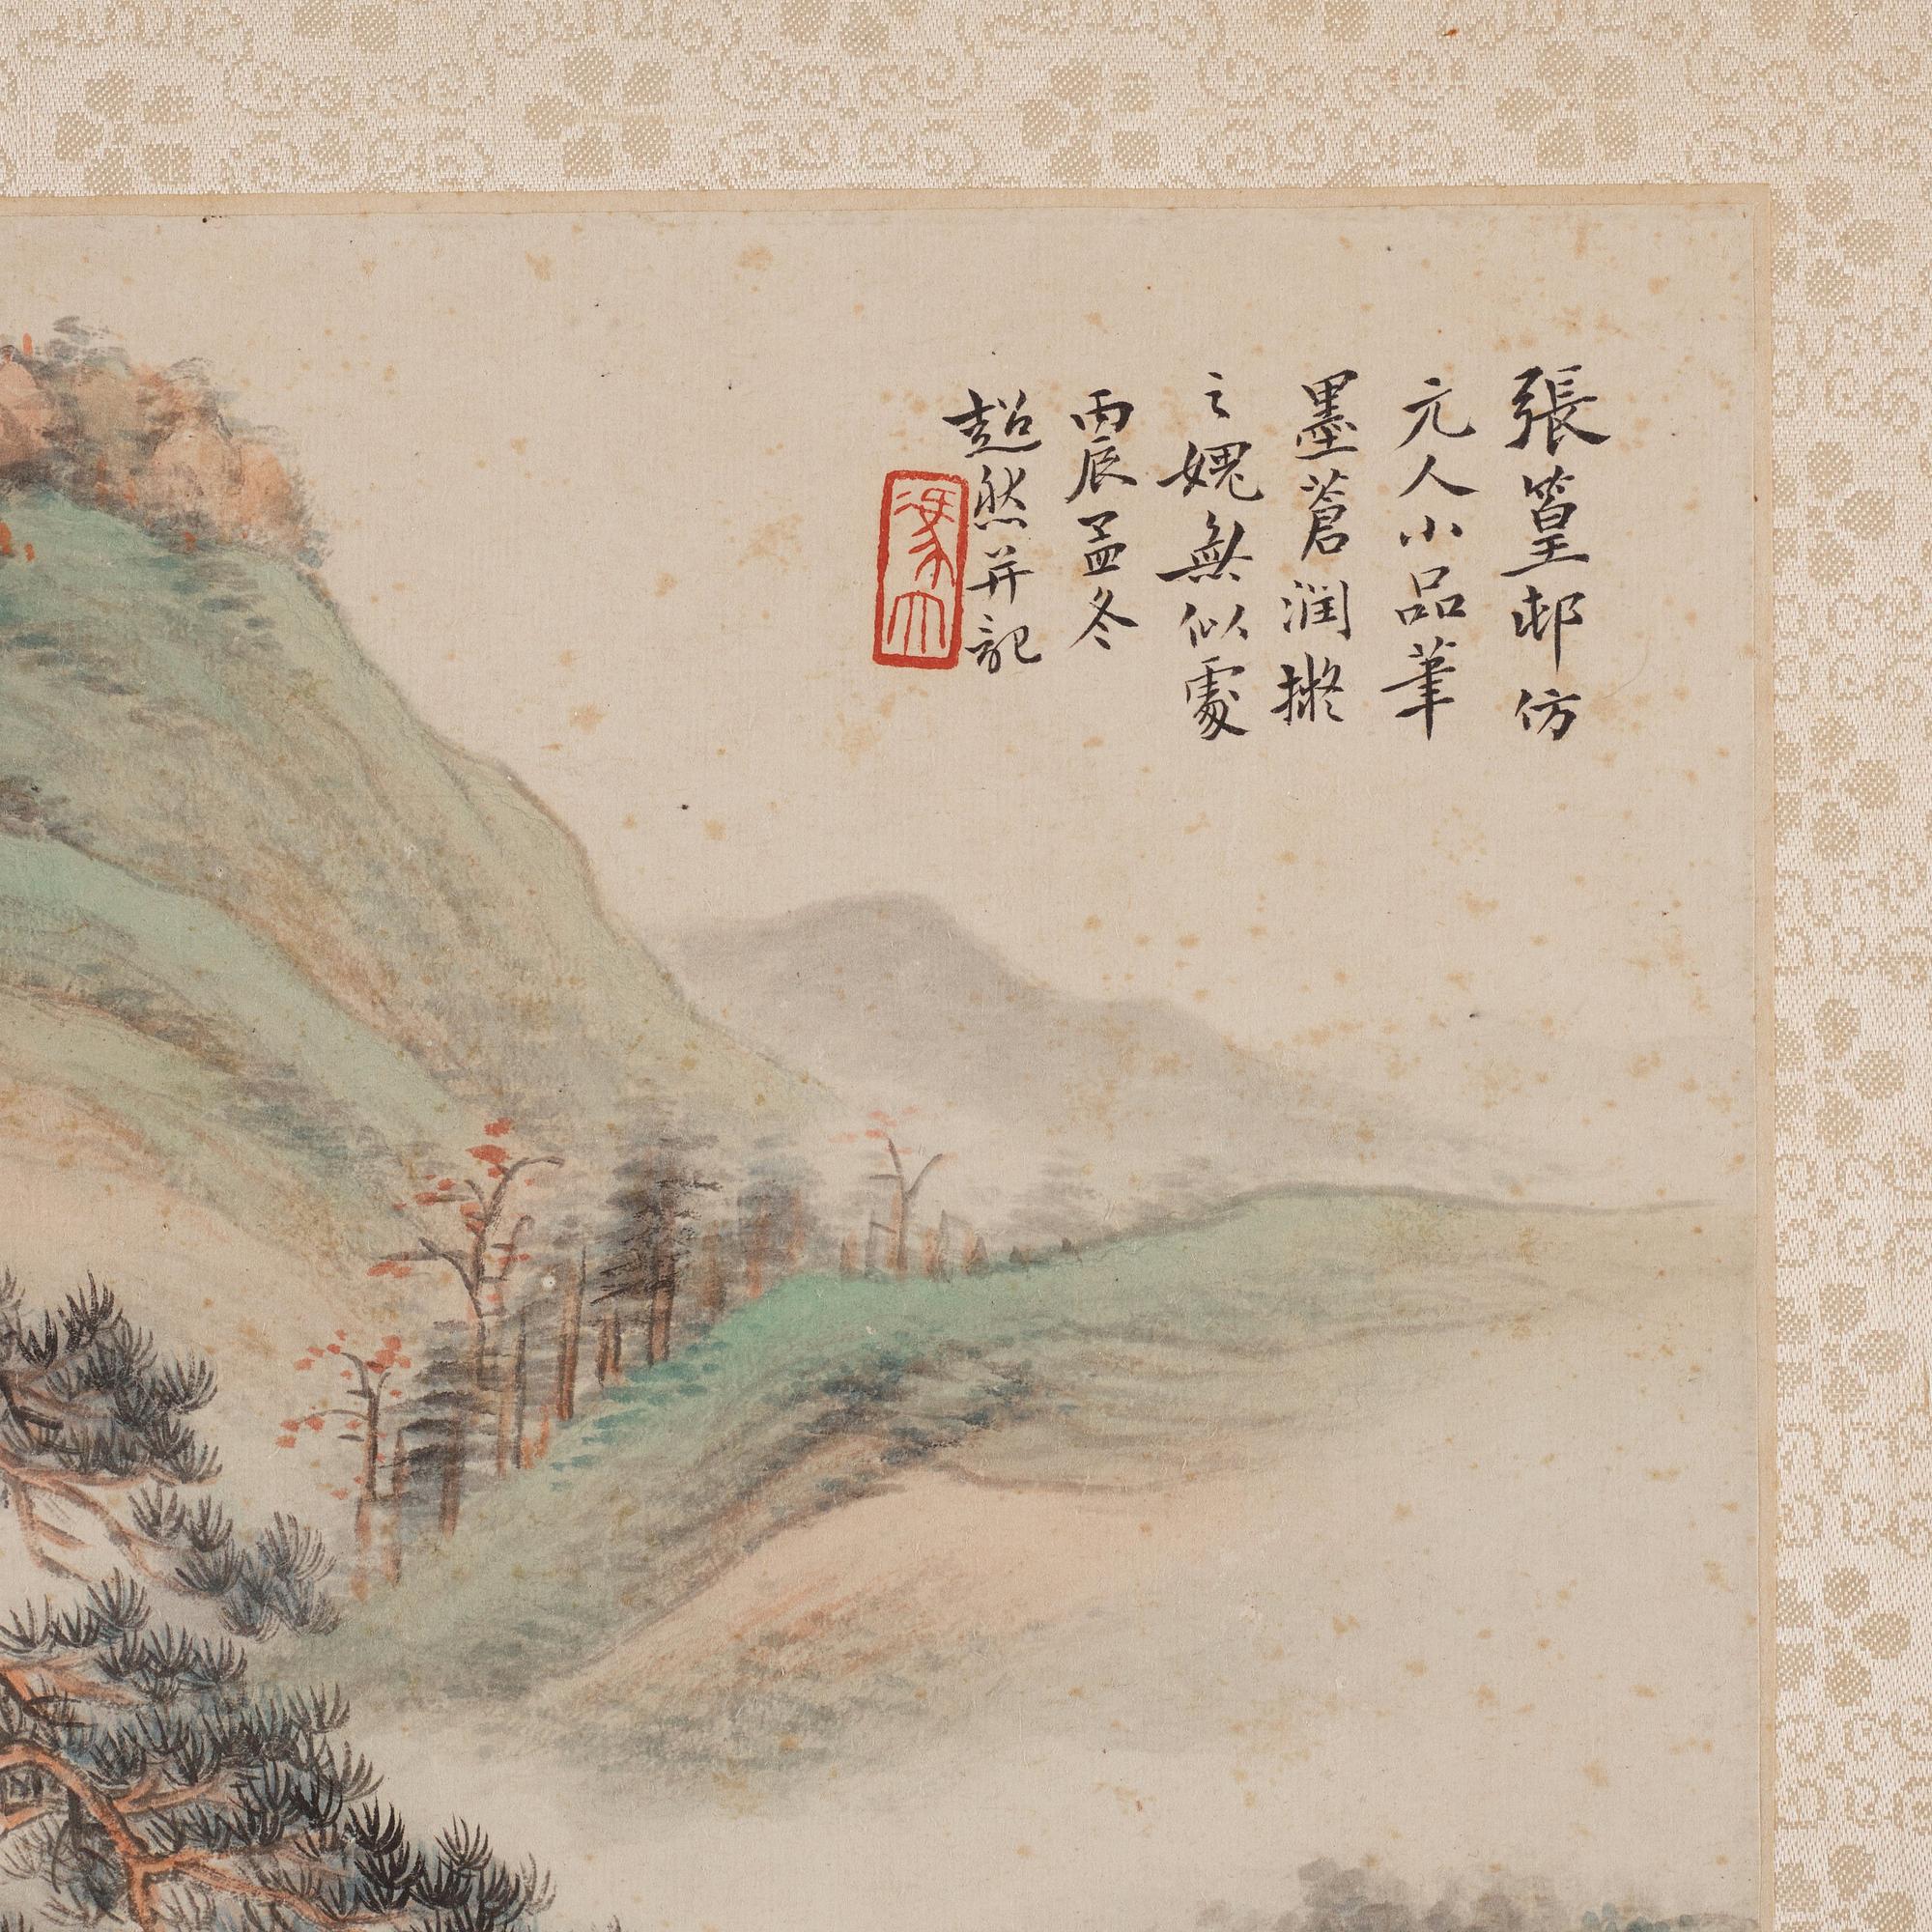 張篁邨仿
元人小品筆
墨蒼潤擬
之媿無似處
丙辰孟冬
超然并記
馮